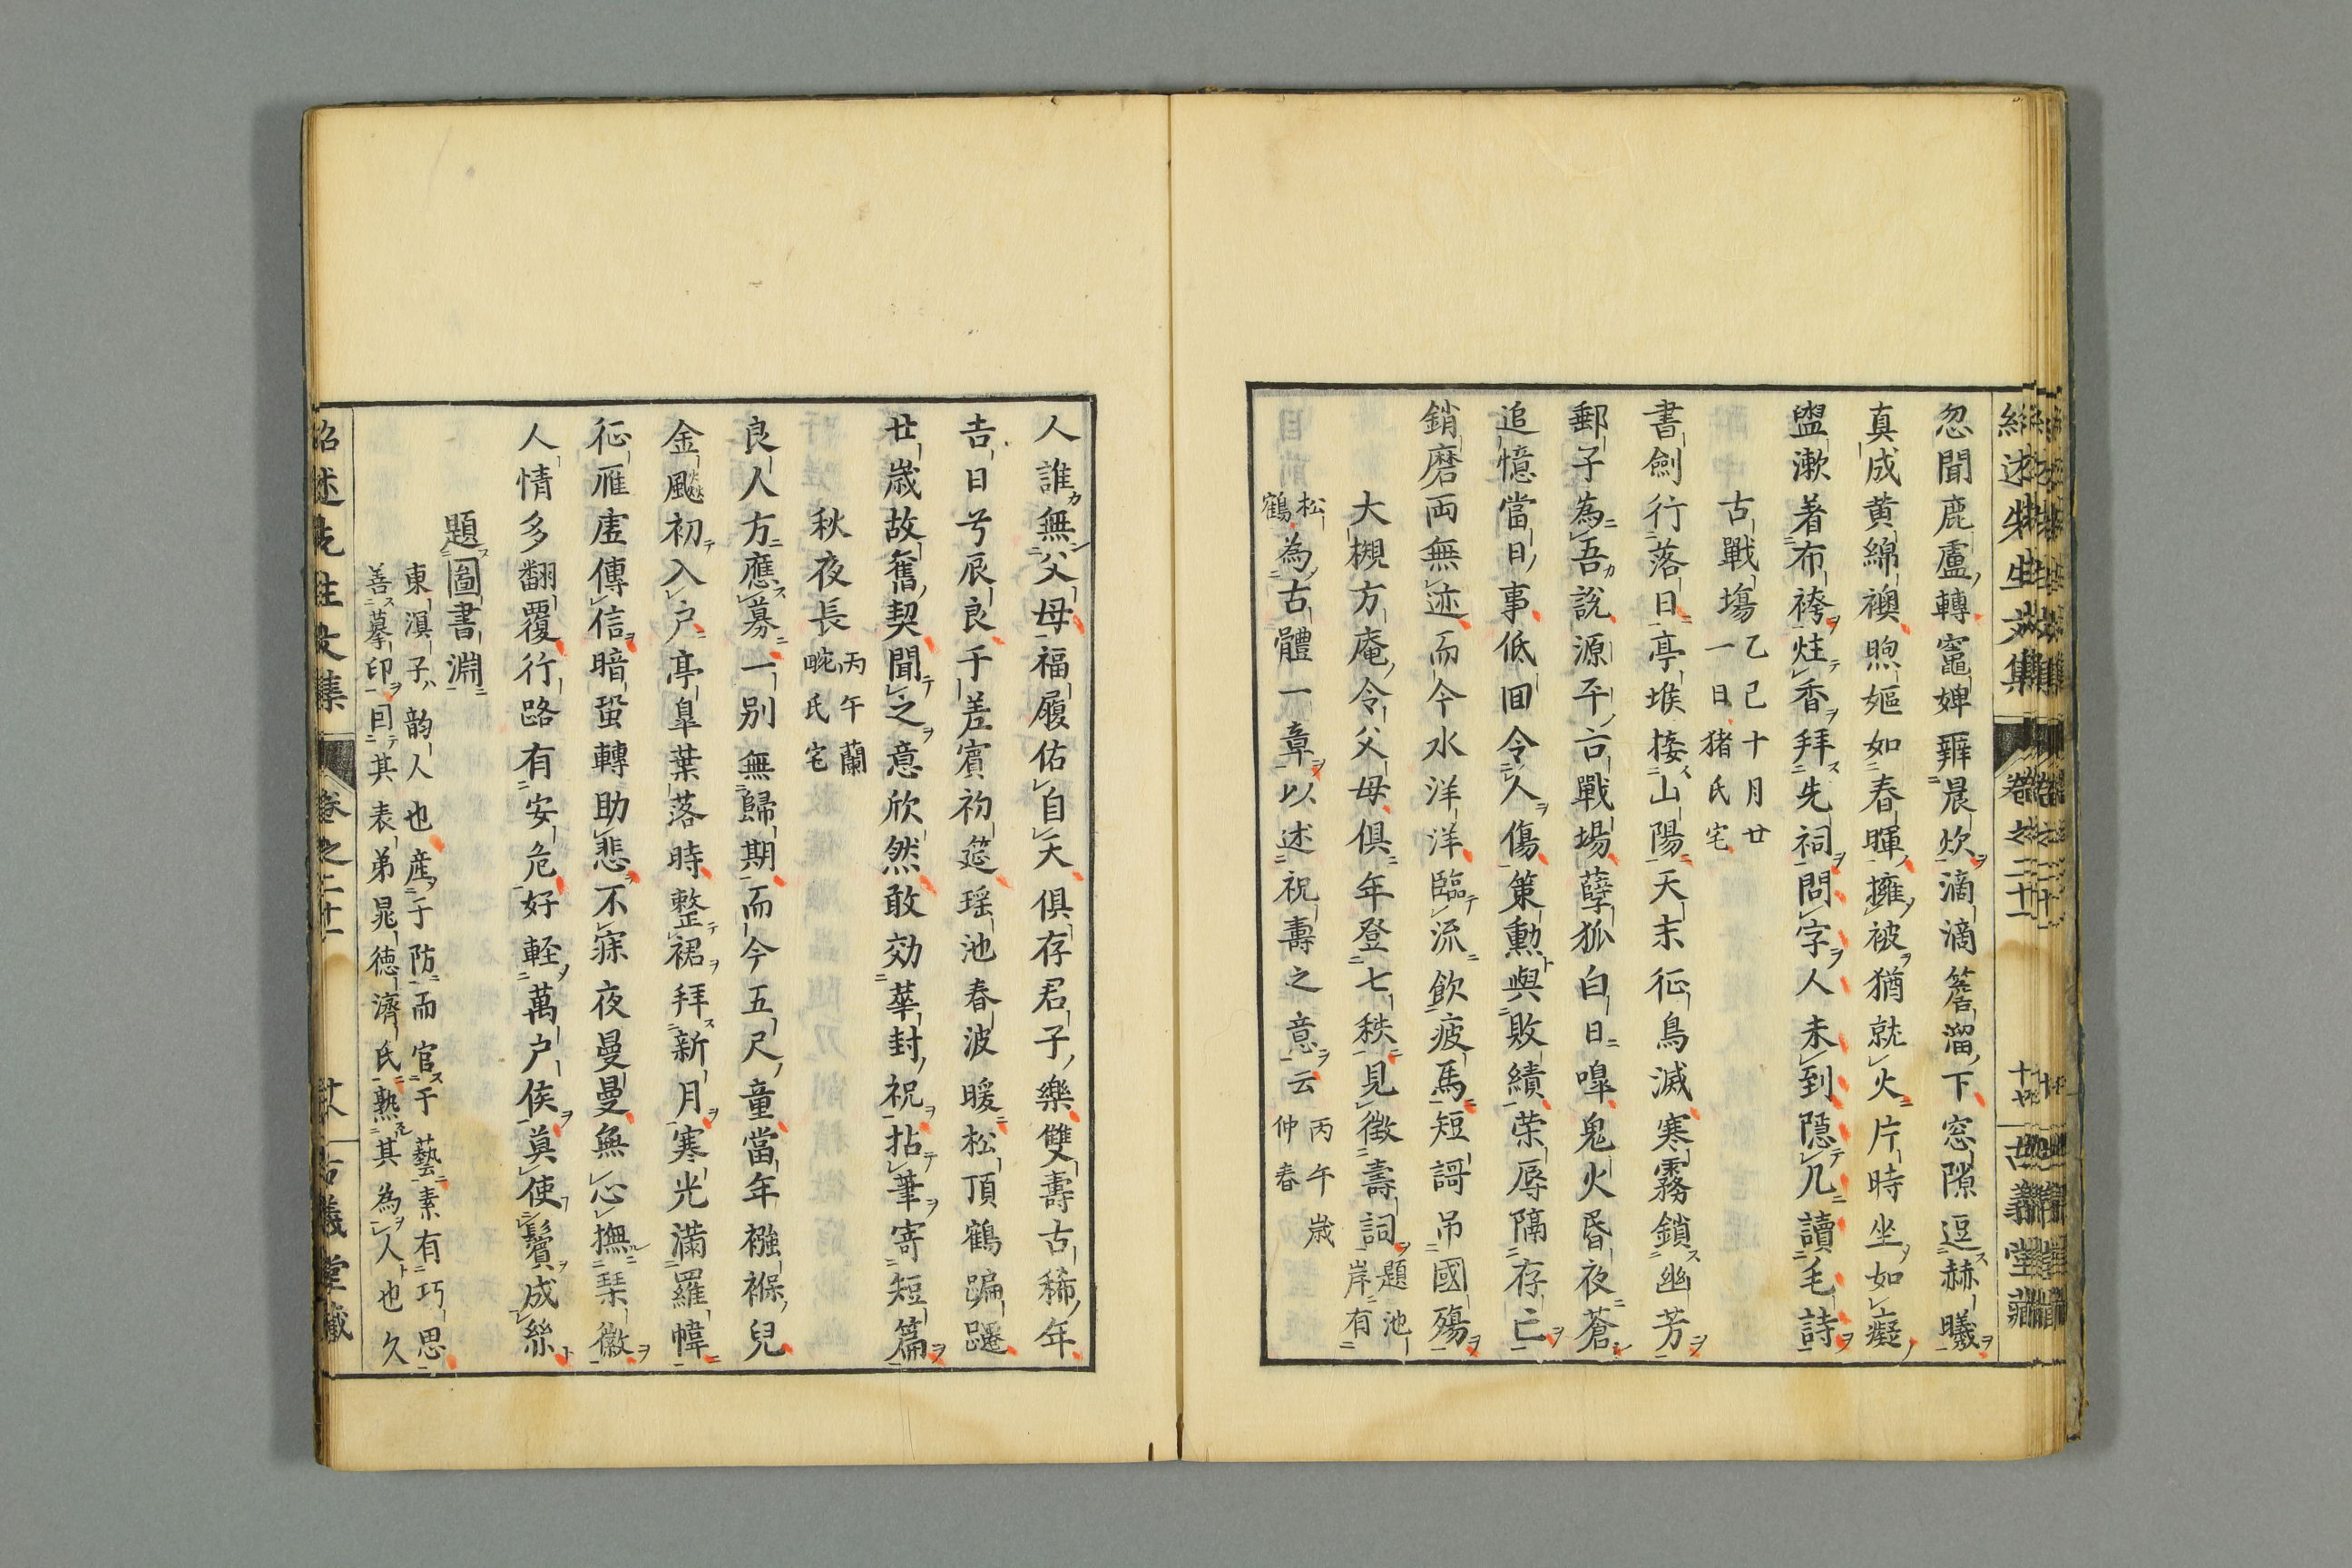 忽聞鹿盧轉竈婢辦晨炊滴滴簷溜下窓隙逗赫曦
真成黄綿襖煦嫗如春暉擁被猶就火片時坐如癡
盥漱着布袴炷香拜先祠問字人未到隠几讀毛詩
古戰塲
乙巳十月廿
一日猪氏宅
書劍行落日亭堠接山陽天末征鳥滅寒霧鎖幽芳
郵子為吾說源平古戰場孽狐白日嘷鬼火昏夜蒼
追憶當日事低囬令人傷策勲與敗績荣辱隔存亡
銷磨両無迹而今水洋洋臨流飲疲馬短謌吊國殤
大槻方庵令父母俱年登七秩見徴壽詞題池岸有
松鶴為古體一章以述祝壽之意云
丙午歳
仲春
人誰無父母福履佑自天俱存君子樂雙壽古稀年
吉日兮辰良千差賓初筵瑶池春波暖松頂鶴蹁躚
廿歳故舊契聞之意欣然敢効華封祝拈筆寄短篇
秋夜長
丙午蘭
畹氏宅
良人方應募一别無歸期而今五尺童當年襁褓兒
金颷初入戸亭皐葉落時整裙拜新月寒光滿羅幃
征雁虚傳信暗蛩轉助悲不寐夜曼曼無心撫琹徽
人情多翻覆行路有安危好輕萬户侯莫使鬢成絲
題圖書淵
東溟子韵人也産于防而官于藝素有巧思
善摹印因其表弟晁徳濟氏熟其為人也久
紹述先生文集
卷之二十一
古義堂藏